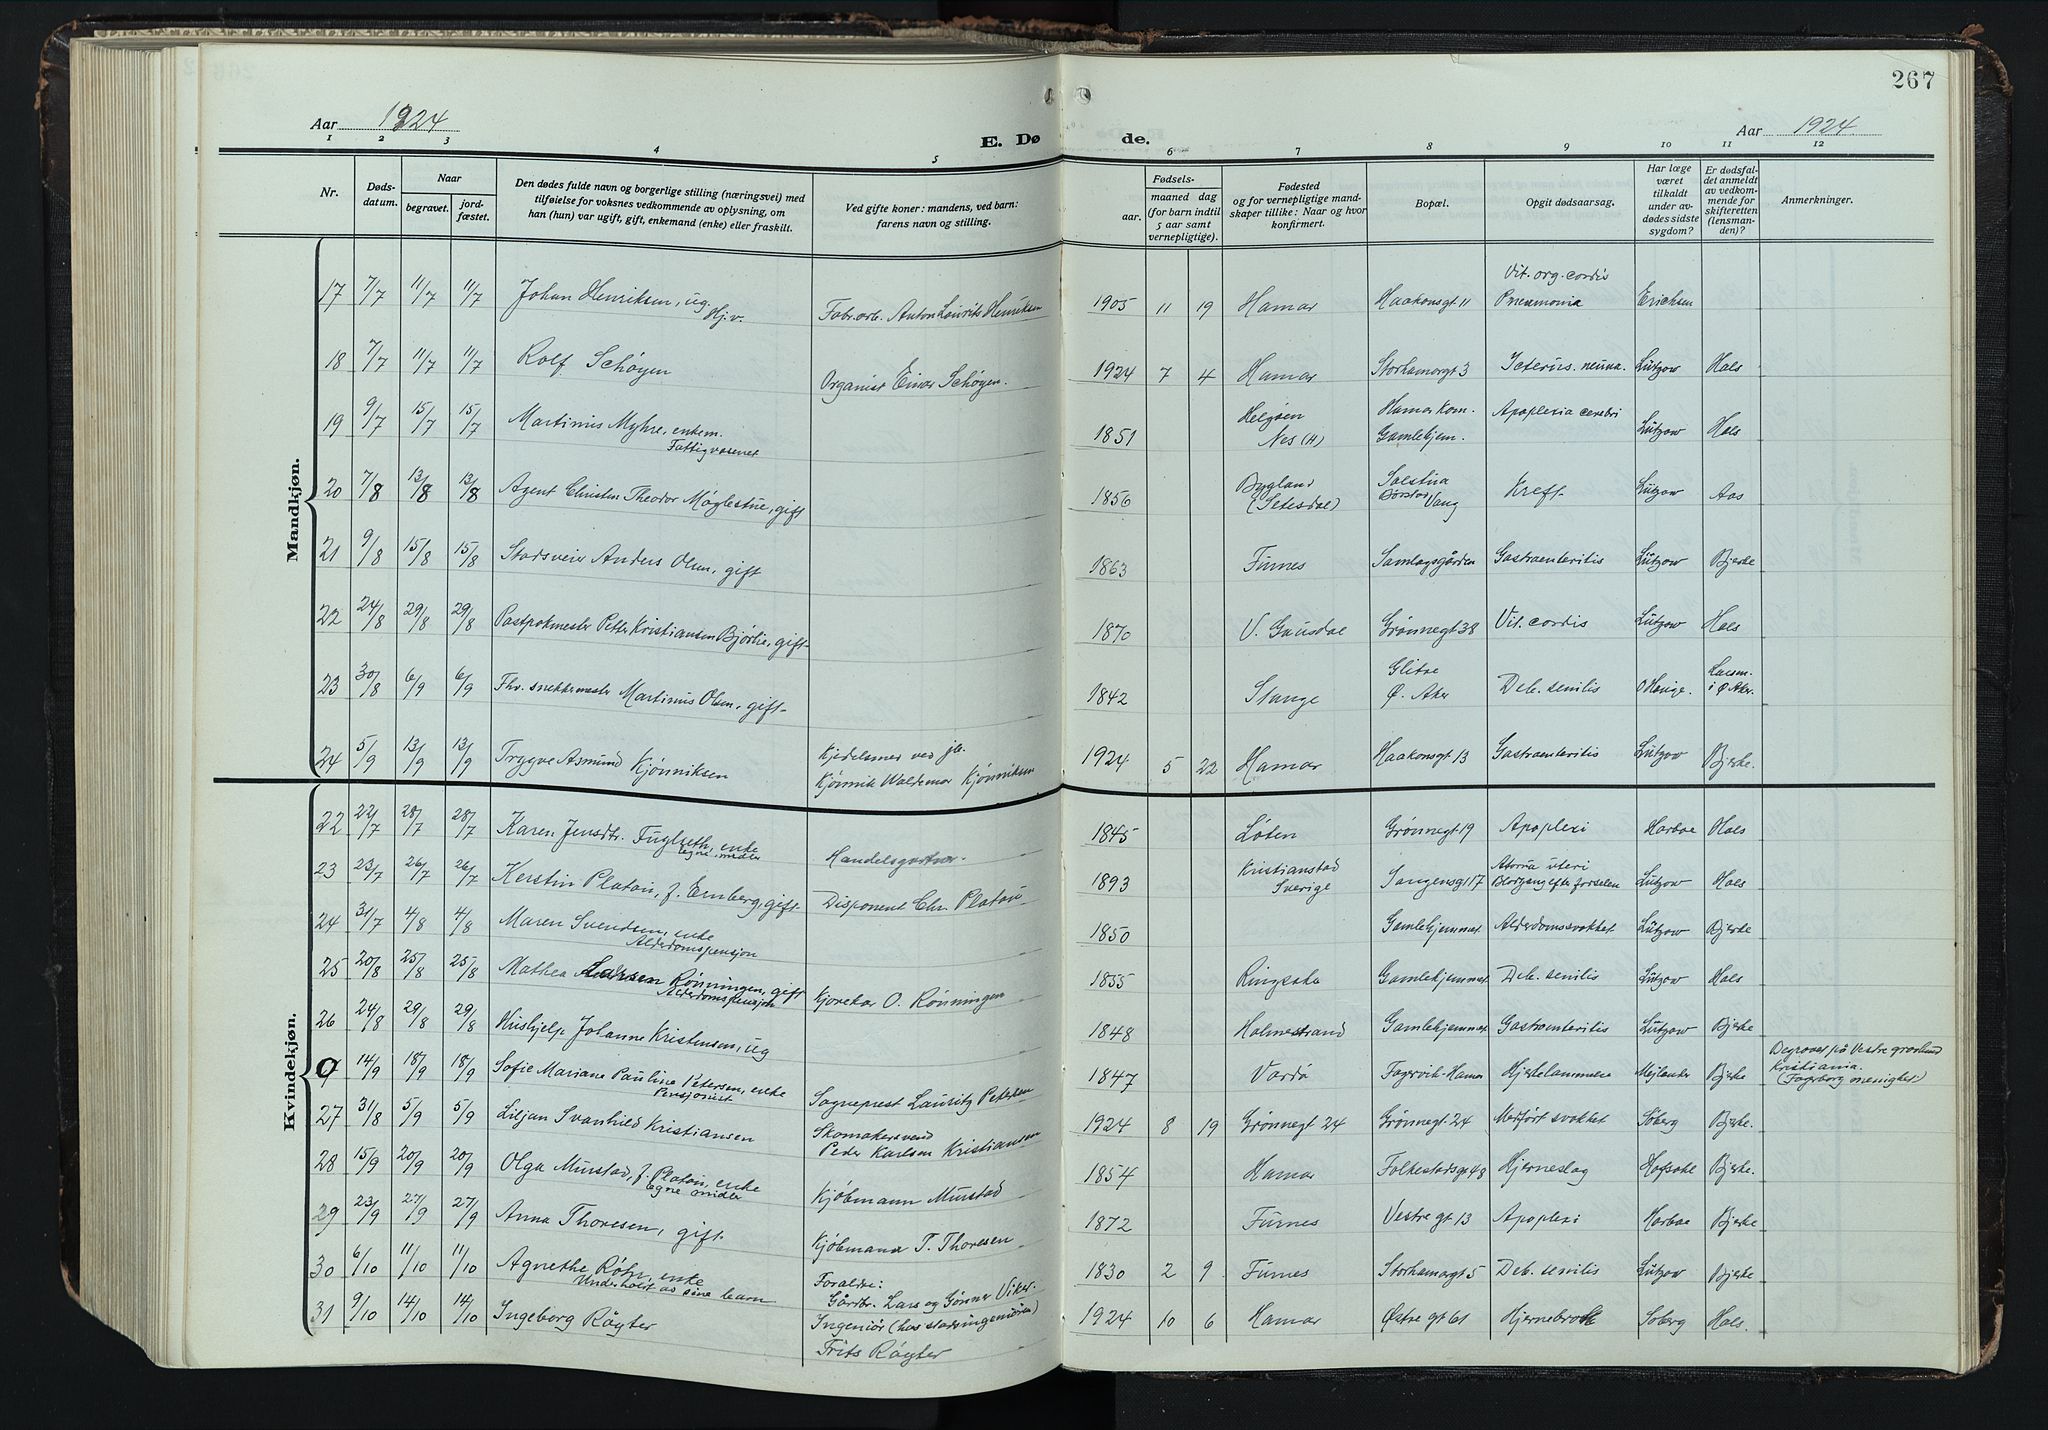 267
Aar 1924
E. Dø de.
Aar 1924.
1 2 3 4 5 6 7 8 9 10 11 12
Nr.
Døds-
datum.
Naar
begravet.
jord-
fæstet.
Den dødes fulde navn og borgerlige stilling (næringsvei) med
tilføielse for voksnes vedkommende av oplysning, om
han (hun) var ugift, gift, enkemand (enke) eller fraskilt.
Ved gifte koner: mandens, ved barn:
farens navn og stilling.
Fødsels-
aar.
maaned dag
(for barn indtil
5 aar samt
vernepligtige).
Fødested
og for vernepligtige mand-
skaper tillike: Naar og hvor
konfirmert.
Bopæl.
Opgit dødsaarsag.
Har læge
været
tilkaldt
under av-
dødes sidste
sygdom?
Er dødsfal-
det anmeldt
av vedkom-
mende for
skifteretten
(lensman-
den)?
Anmerkninger.
Mandkjøn.
17 7/7 11/7 11/7 Johan Henriksen, ug. Hj.v. Fabr.arb. Anton Laurits Henriksen 1905 11 19 Hamar Haakonsgt 11 Vit. org. cordis Pneumonia Erichsen
18 7/7 11/7 11/7 Rolf Schøyen Organist Einar Schøyen. 1924 7 4 Hamar Storhamargt 3 Icterus Lützow Hals
19 9/7 15/7 15/7 Martinus Myhre, enkem. Fattigvæsenet 1851 Helgøen Nes (H) Hamar kom. Gamlehjem. Apoplexia cerebri Lützow Hals
20 7/8 13/8 13/8 Agent Christen Theodor Møglestue, gift 1856 Bygland (Setesdal) Solstua Børstad Vang Kreft Lützow Aas
21 9/8 15/8 15/8 Stadsveier Anders Olsen, gift 1863 Furnes Samlagsgården Gastroenteritis Lützow Bjerke
22 24/8 29/8 29/8 Postpakmester Petter Kristiansen Bjørlie, gift 1870 V. Gausdal Grønnegt 38 Vit. cordis Lützow Hals
23 30/8 6/9 6/9 Fhv. snekkermester Martinus Olsen, gift 1842 Stange Glitre Ø. Aker Deb. senilis O Hauge. Lensm. i Ø. Aker.
24 5/9 13/9 13/9 Trygve Asmund Kjønniksen Kjedelsmed ved jb. Kjønnik Waldemar Kjønniksen 1924 5 22 Hamar Haakonsgt 13 Gastroenteritis Lützow Bjerke.
Kvindekjøn.
22 22/7 28/7 28/7 Karen Jensdtr. Fuglseth, enke egne midler Handelsgartner 1845 Løten Grønnegt 19 Apoplexi Harboe Hals
23 23/7 26/7 26/7 Kerstin Platou, f. Ernberg, gift Disponent Chr. Platou 1893 Kristianstad Sverige Torggt 17 Atonia uteri Blødgang efter fødselen Lützow Hals
24 31/7 4/8 4/8 Maren Svendsen, enke Alderdomspensjon 1850 Gamlehjemmet Alderdomssvakhet Lützow Bjerke
25 20/8 25/8 25/8 Mathea Larsen Rønningen, gift Alderdomspensjon Kjørekar O. Rønningen 1855 Ringsaker Gamlehjemmet Deb. senilis Lützow Hals
26 24/8 29/8 29/8 Hushjelp Johanne Kristensen, ug 1848 Holmestrand Gamlehjemmet Gastroenteritis Lützow Bjerke
0 14/9 18/9 18/9 Sofie Mariane Pauline Petersen, enke Pensjonist Sogneprest Lauritz Petersen 1847 Vardø Fagervik-Hamar Hjertelammelse Mejlender Bjerke Begravet på Vestre gravlund Kristiania. (Fagerborg menighet)
27 31/8 5/9 5/9 Liljan Svanhild Kristiansen Skomakersvend Peder Karlsen Kristiansen 1924 8 19 Grønnegt 24 Grønnegt. 24 Medført svakhet Søberg Bjerke.
28 15/9 20/9 20/9 Olga Murstad, f. Platou, enke egne midler Kjøbmann Murstad 1854 Hamar Folkestadsgt 48 Hjerneslag Hofsøle Bjerke.
29 23/9 27/9 27/9 Anna Thoresen, gift. Kjøbmann T. Thoresen 1872 Furnes Vestregt 13 Apoplexi Harboe Bjerke
30 6/10 11/10 11/10 Agnethe Røhr, enke Underholdt av sine barn Foreldre: Gårdbr. Lars og Gunnor Viker 1830 2 9 Furnes Storhamargt 5 Deb. senilis Lützow Bjerke
31 9/10 14/10 14/10 Ingeborg Røyter Ingeniør (hos stadsingeniøren) Frits Røyter 1924 10 6 Hamar Østregt 61 Hjernebrokk Søberg Hals.